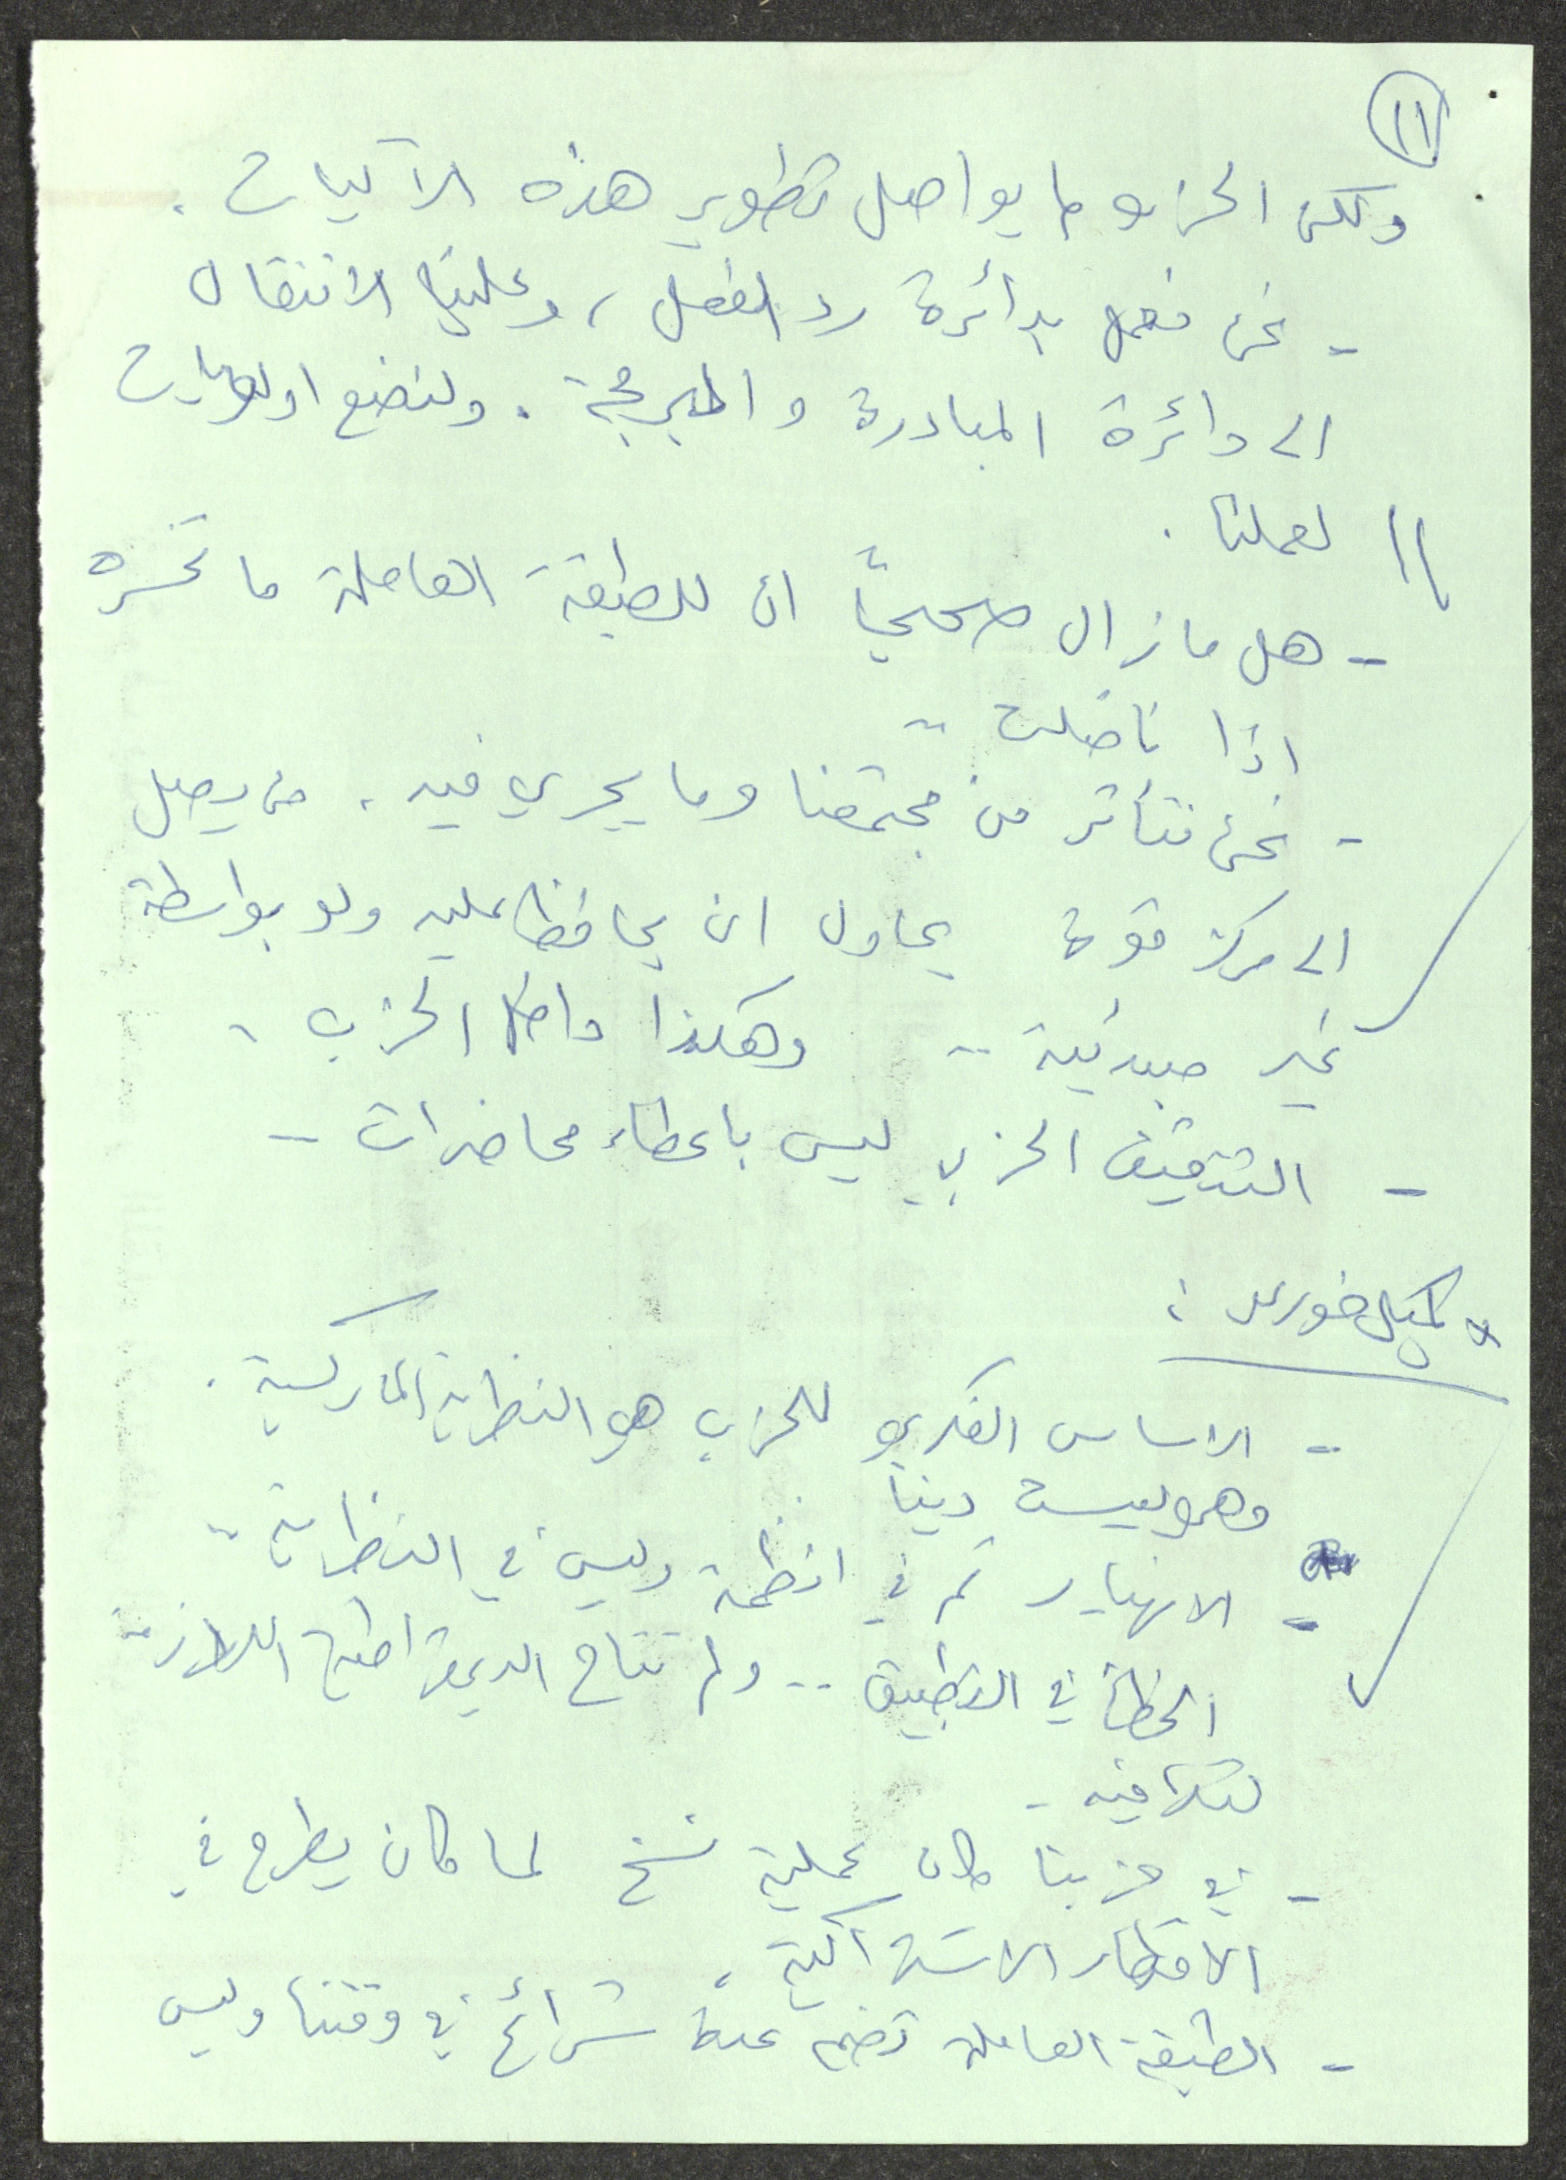 ١١
ولكن الحزب لم يواصل تطوير هذه الآليات .
- نحن نعمل بدائرة رد الفعل ، وعلينا الانتقال
الى دائرة المبادرة والبرمجة . ولنضع اولويات
لعملنا .
- هل مازال صحيحاً ان للطبقة العاملة ما تخسره
اذا ناضلت ..
- نحن نتأثر من مجتمعنا وما يجري فيه . من يصل
الى مركز قوة يحاول ان يحافظ عليه ولو بواسطة
غير مبدئية .. وهكذا داخل الحزب .
- التثقيف الحزبي ليس باعطاء محاضرات ..
خوري :
- الاساس الفكري للحزب هو النظرية الماركسية .
وهو ليست ديناً
- الانهيار تم في انظمة وليس في النظرية ..
الخطأ في التطبيق .. ولم تتاح الديمقراطية اللازمة
لتلافيه .
- في حزبنا كان عملية نسخ لما كان يطرح في
الاقطار الاشتراكية .
- الطبقة العاملة تضم عدة شرائح في وقتنا وليس